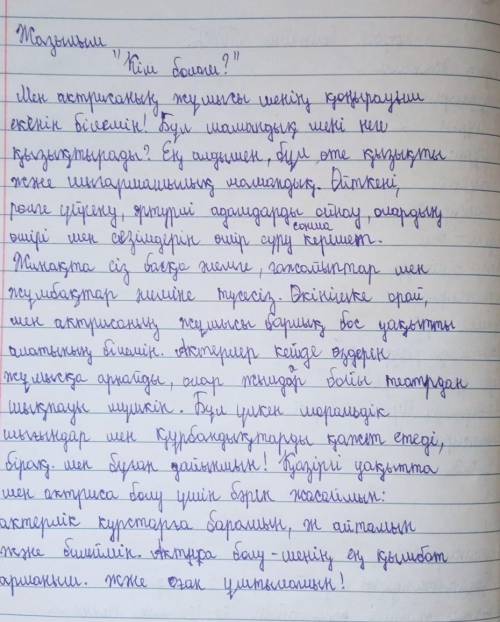 Жазылым
"Кім болам?"
Мен актрисаның жұмысы менің қоңырауым
екенін білемін! Бұл мамандық мені неге
қызықтырады? Ең алдымен, бұл өте қызықты
және шығармашылық мамандық. Өйткені,
рөлге үйрену, әртүрлі адамдарды ойнау, олардың
өмірі мен сезімдерін өмір сүру сонша керемет.
Жинақта сіз басқа әлемге, ғажайыптар мен
жұмбақтар әлеміне түсесіз. Өкінішке орай,
мен актрисаның жұмысы барлық бос уақытты
алатынын білемін. Актерлер кейде өздерін
жұмысқа арнайды, олар жылдар бойы театрдан
шықпауы мүмкін. Бұл үлкен моральдік
шығындар мен құрбандықтарды қажет етеді,
бірақ мен бұған дайынмын! Қазіргі уақытта
мен актриса болу үшін бәрін жасаймын:
актерлік курстарға барамын, ән айтамын
және билеймін. Актриса болу - менің ең қымбат
арманым. және оған ұмтыламын!